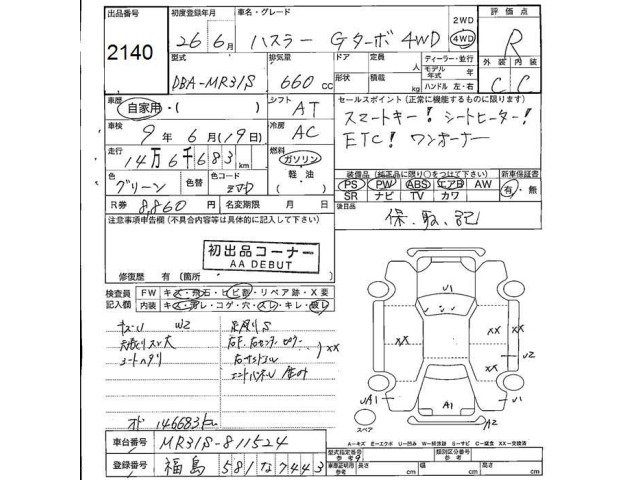 出品番号 初度登録年月 車名・グレード 2WD 評価点
2140 26年6月 ハスラー Gターボ 4WD 4WD R
型式 排気量 ドア 定員 人 ディーラー・並行 外装 内装
DBA-MR31S 660cc 形状 積載 kg モデル年式 年 ハンドル 左・右 C C
車歴 自家用・( ) シフト AT セールスポイント(正常に機能するものに限ります)
車検 9年6月(19日) 冷房 AC スマートキー! シートヒーター!
走行 14万6千683km 燃料 ガソリン 軽油 ( ) ETC! ワンオーナー
色 グリーン 色替 色コード 装備品(純正品に限り○をつけて下さい) 新車保証書
PS PW ABS エアB AW 有・無
SR ナビ TV カワ
R券 8,860円 名変期限 月 日 後日品
注意事項申告欄(不具合内容等は具体的に記入して下さい) 保、取、記
初出品コーナー
AA DEBUT
修復歴 有(箇所 )
検査員 FW キズ・飛石・ヒビ割・リペア跡・X要
記入欄 内装 キズ・汚レ・コゲ・穴・スレ・キレ・破レ
キズU W2
XX
U1
XX XX XX U2
UA1 A1 U1
A2
スペア
オド 146683km
車台番号 MR31S-811524
A-キズ E-エクボ U-凹み W-補修跡 S-サビ C-腐食 XX-交換済
型式指定番号 類別区分番号
登録番号 福島 581 な 7443
車庫証明用参考 長さ cm 幅 cm 高さ cm